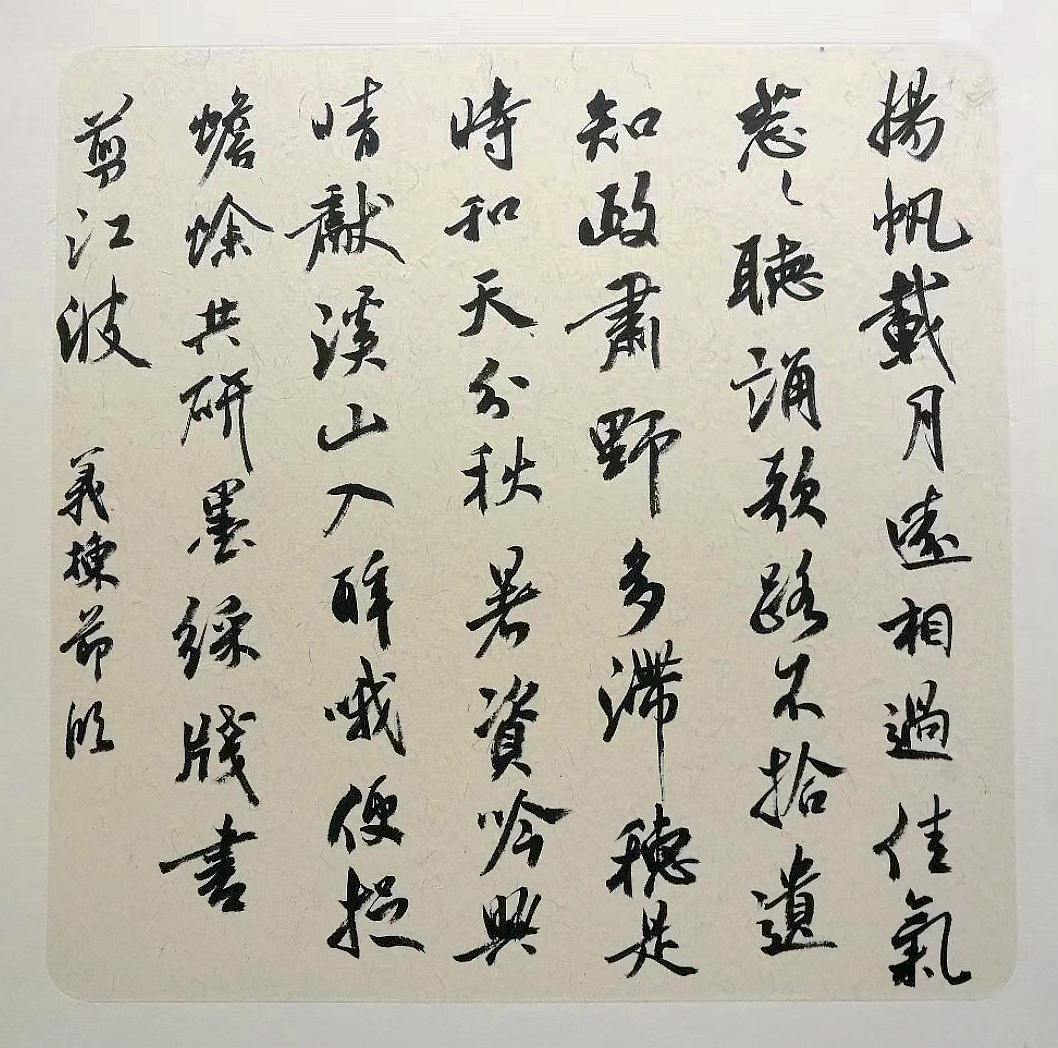 揚帆載月遠相過佳氣
葱〻聽誦歌路不拾遺
知政肅野多滯穗是
時和天分秋暑資吟興
晴獻溪山入醉哦便捉
蟾蜍共研墨綵牋書
剪江波 義棟節